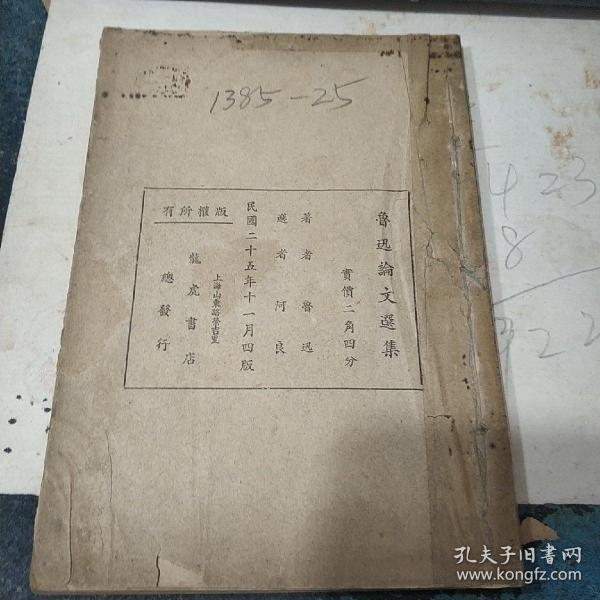 1385-25
魯迅論文選集
實價二角四分
著者魯迅
選者河良
民國二十五年十一月四版
版權所有
上海山東路榮吉里
龍虎書店
總發行
423
8
322
孔夫子旧书网
www.kongfz.com